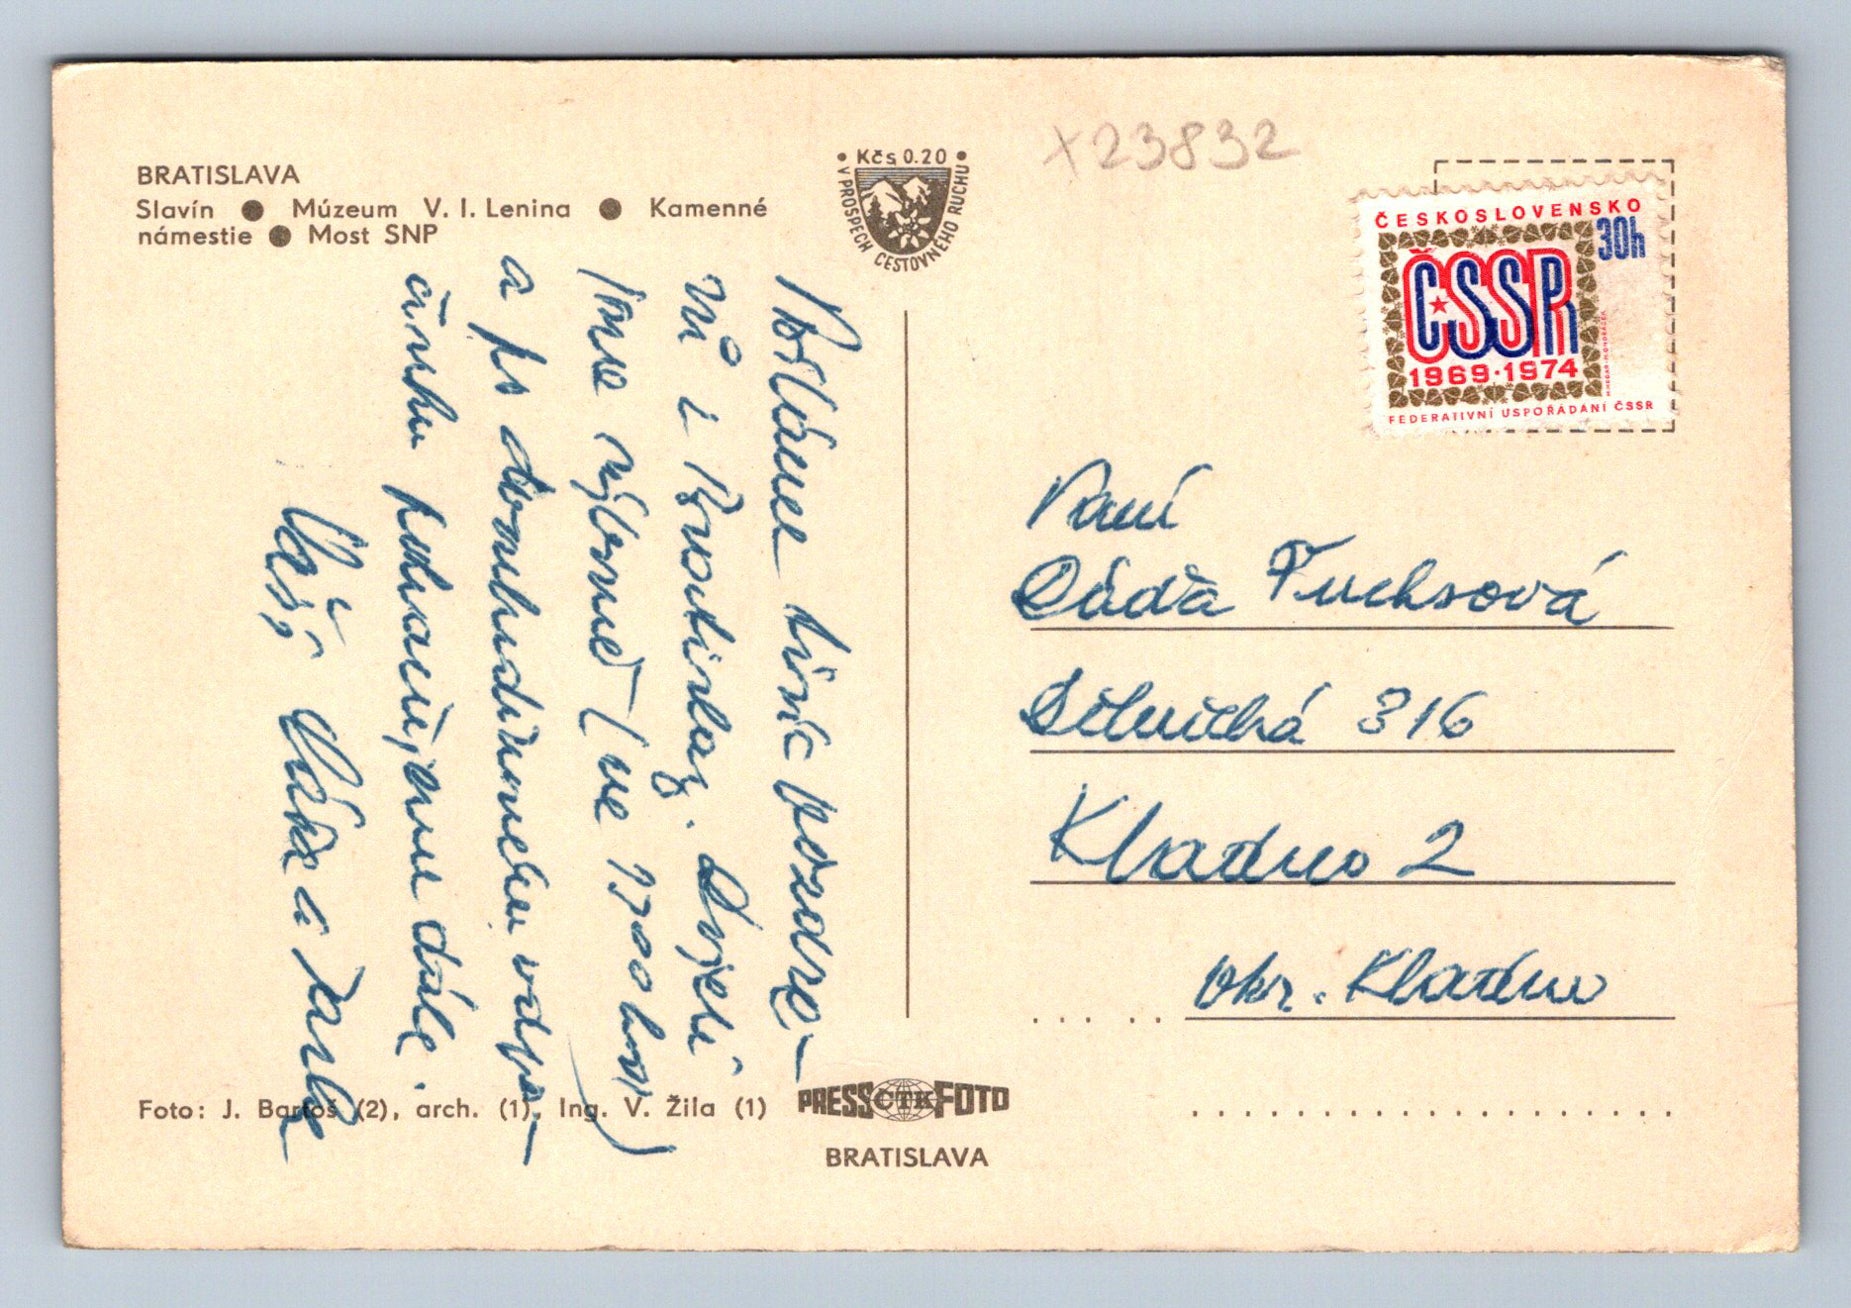 BRATISLAVA
Slavín ● Múzeum V. I. Lenina ● Kamenné
námestie ● Most SNP
• Kčs 0.20 •
V PROSPECH CESTOVNÉHO RUCHU
X23832
ČESKOSLOVENSKO
30h
ČSSR
1969·1974
FEDERATIVNÍ USPOŘÁDÁNÍ ČSSR
Posíláme tisíc pozdra-
vů z Bratislavy. Dojeli
jsme výborně (ve 1700 hod)
a po dvouhodinovém odpo-
činku pokračujeme dále.
Vaši Vláďa a Jarka
Paní
Dáďa Fuchsová
Silnická 316
Kladno 2
okr. Kladno
Foto: J. Bartoš (2), arch. (1), Ing. V. Žila (1)
PRESS ČTK FOTO
BRATISLAVA